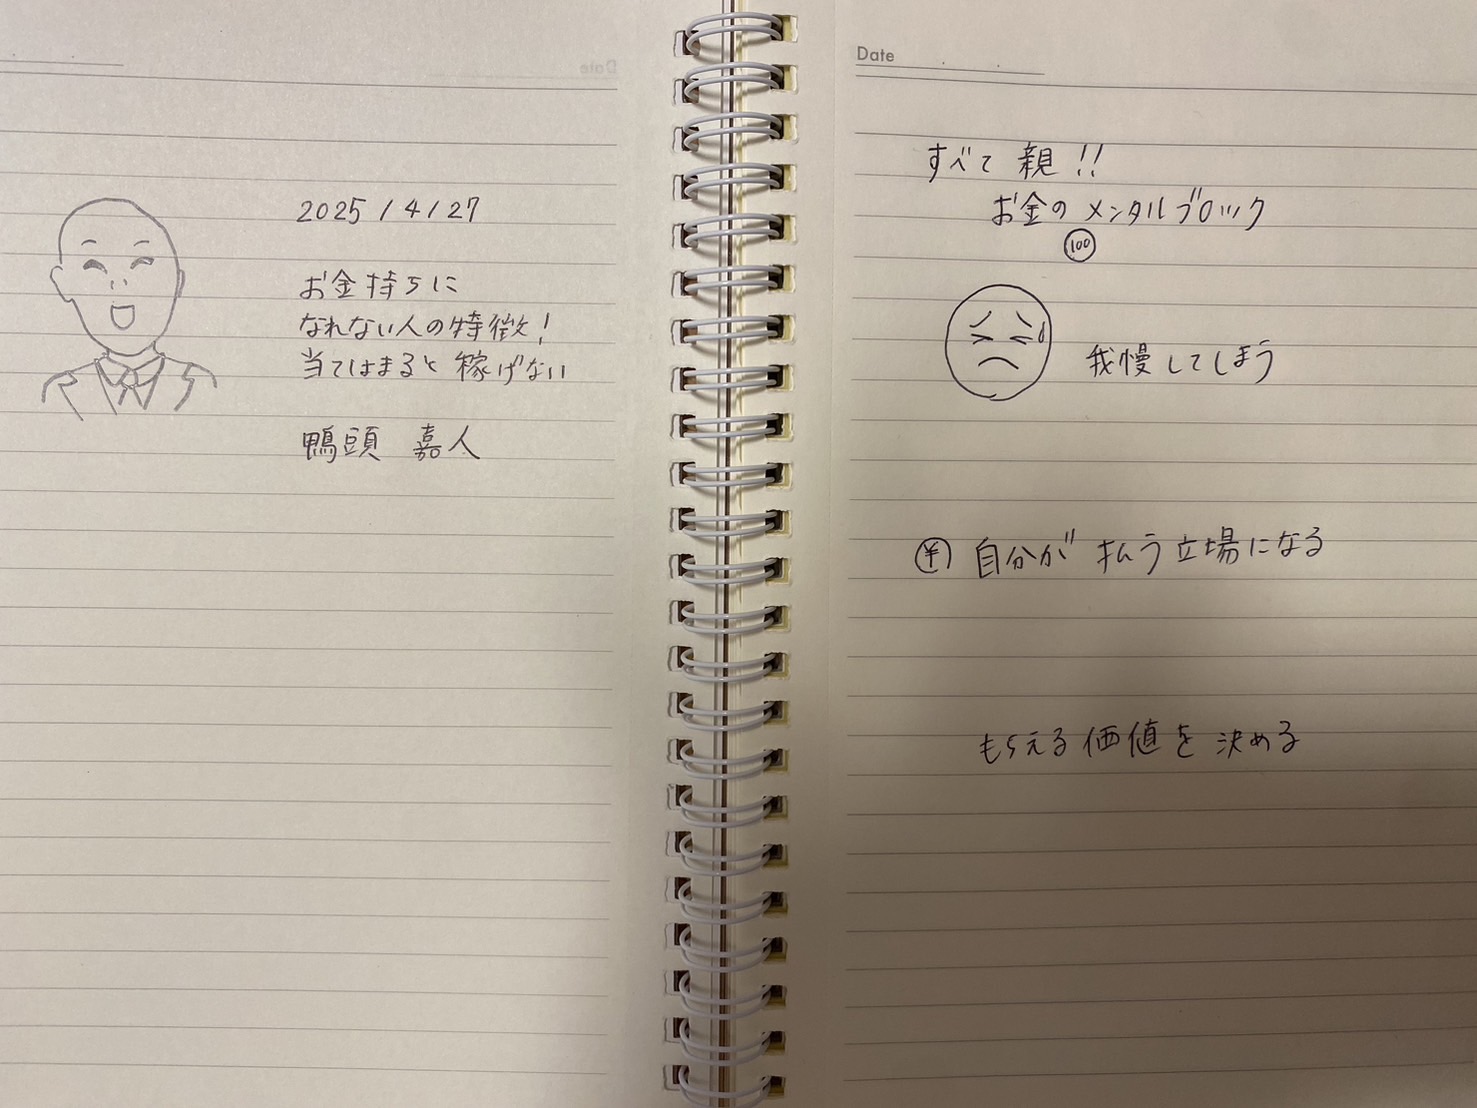 2025/4/27
お金持ちに
なれない人の特徴!
当てはまると稼げない
鴨頭 嘉人
Date
すべて親!!
お金のメンタルブロック
100
我慢してしまう
¥ 自分が払う立場になる
もらえる価値を決める